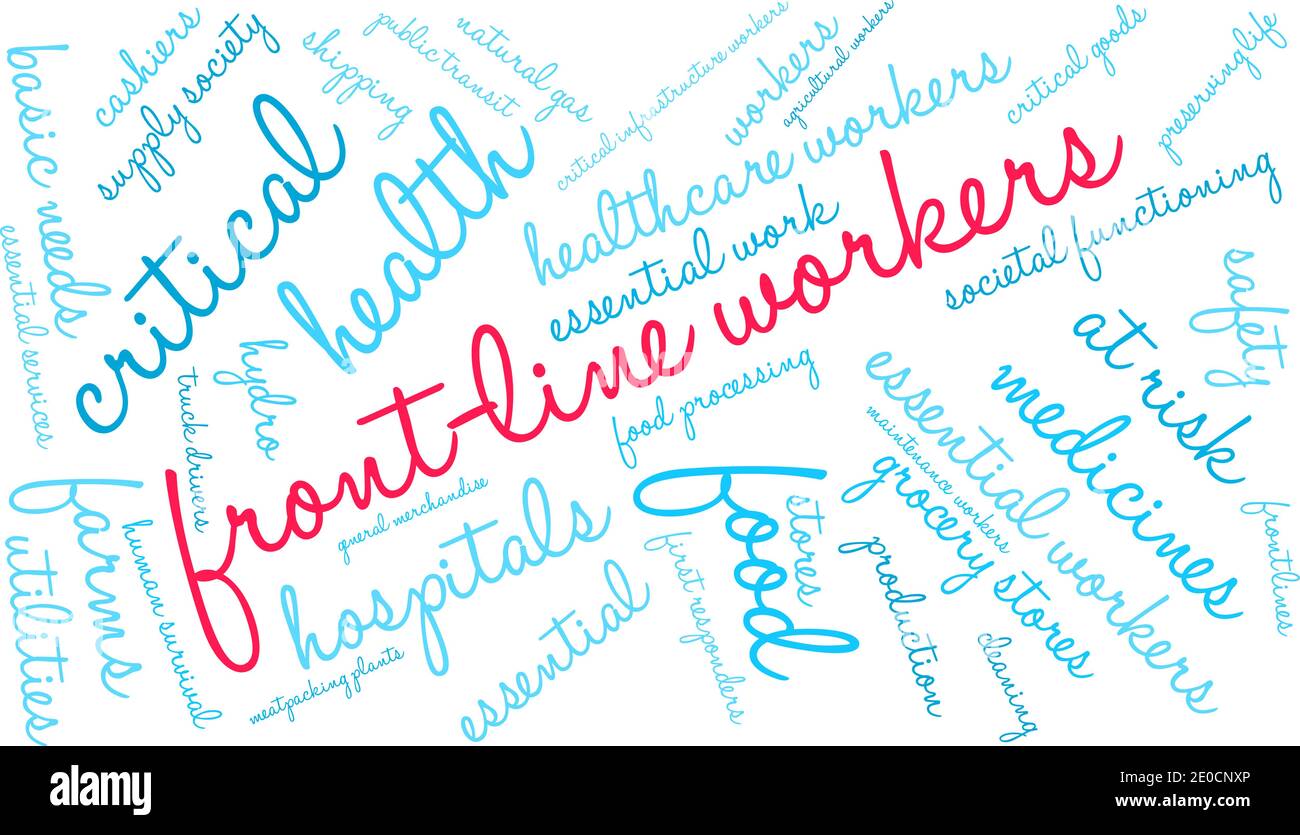 cashiers
supply society
shipping
public transit
natural gas
critical infrastructure workers
workers
agricultural workers
critical goods
preserving life
basic needs
critical
health
healthcare workers
essential work
front-line workers
societal functioning
essential services
hydro
truck drivers
food processing
safety
at risk
medicines
essential workers
maintenance workers
grocery stores
general merchandise
farms
utilities
human survival
hospitals
meatpacking plants
essential
food
stores
first responders
production
cleaning
frontlines
alamy
Image ID: 2E0CNXP
www.alamy.com